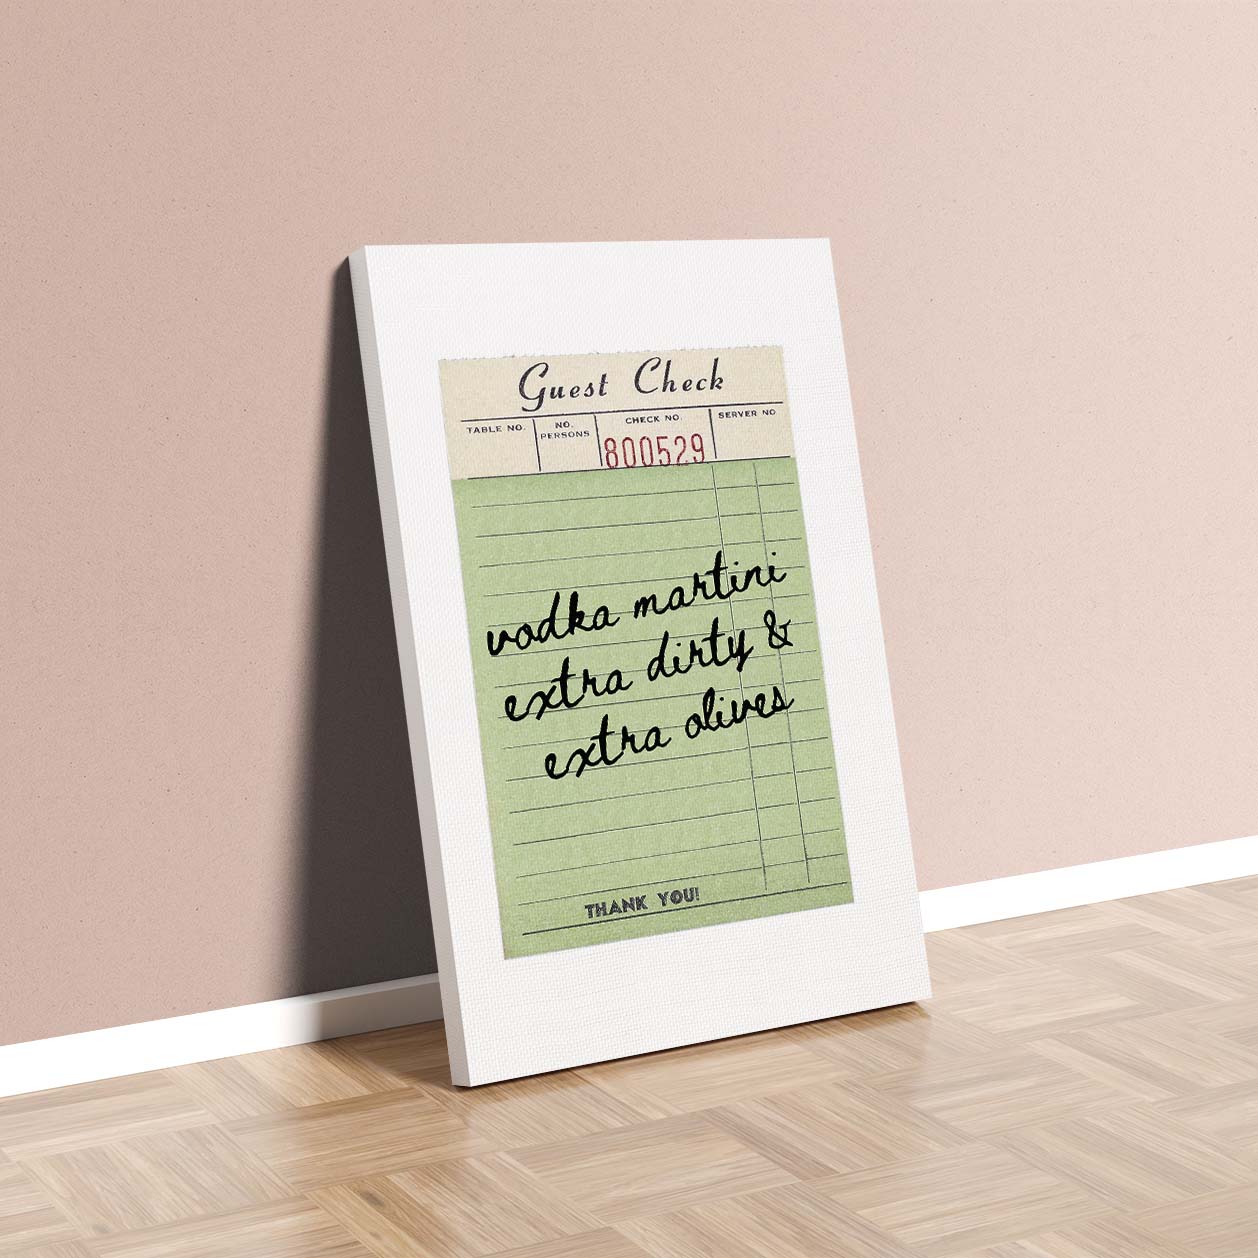 Guest Check
TABLE NO.
NO. PERSONS
CHECK NO.
SERVER NO
800529
vodka martini
extra dirty &
extra olives
THANK YOU!